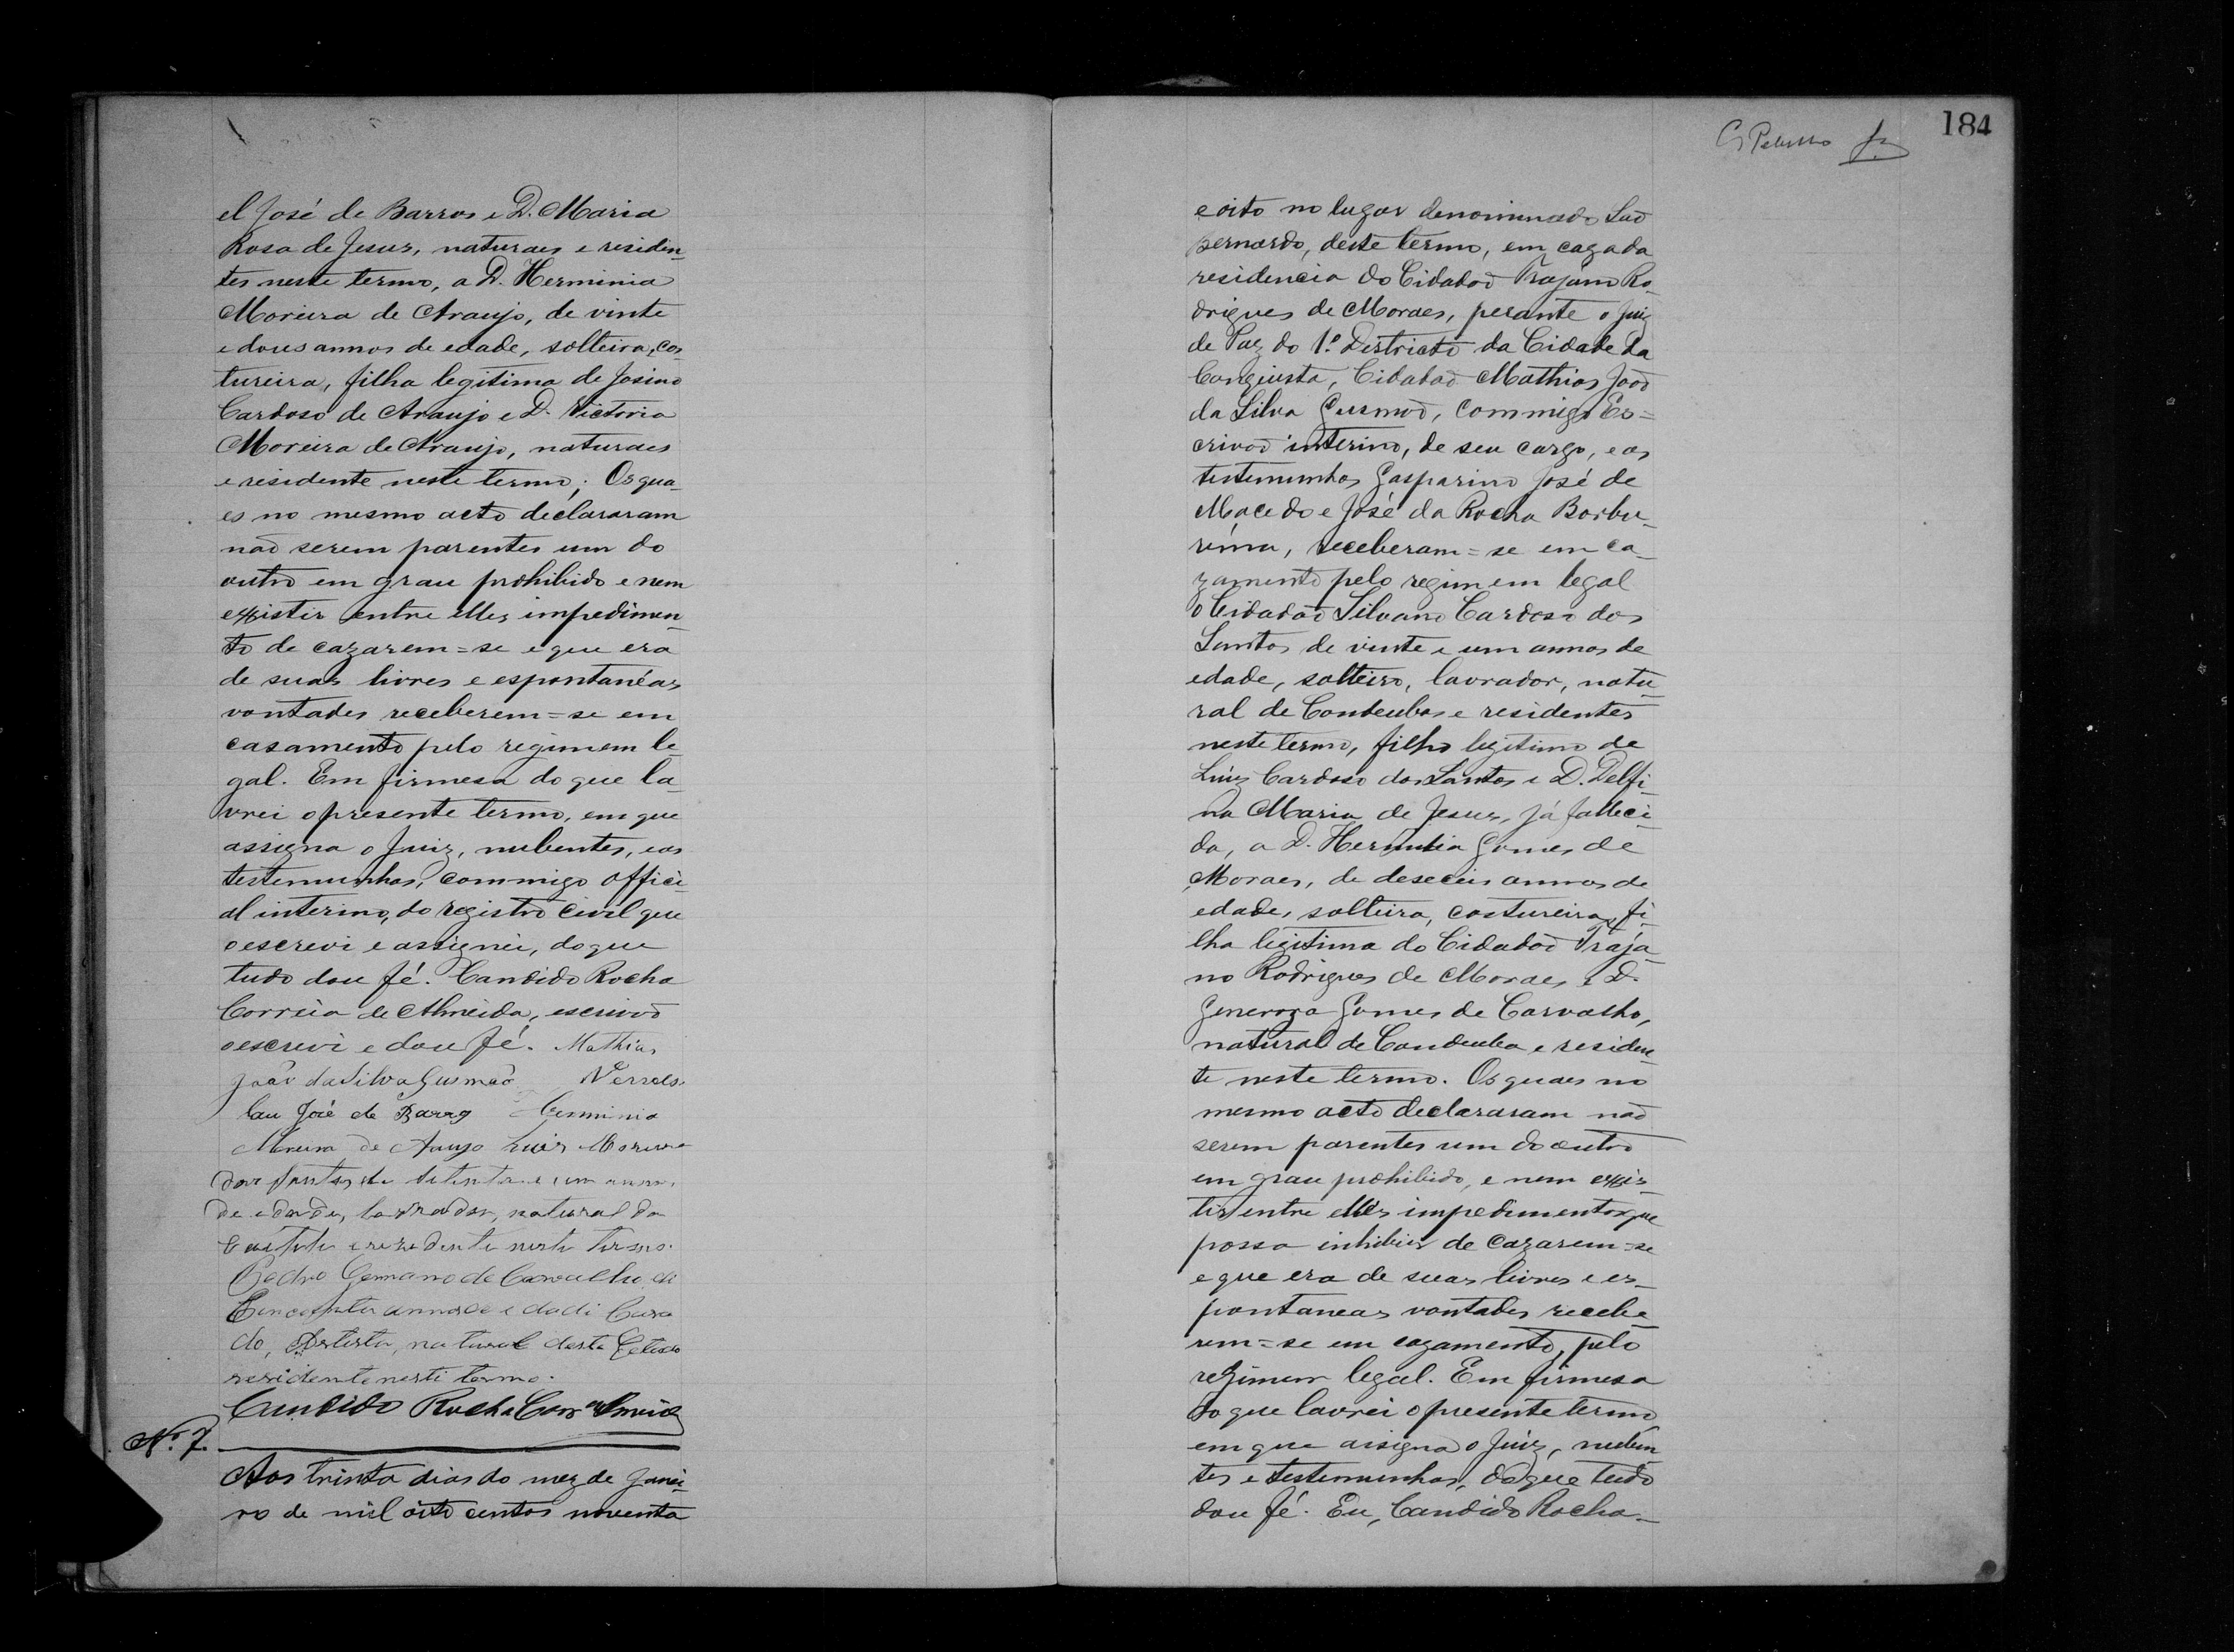 el José de Barros e D. Maria
Rosa de Jesus, naturaes e residen-
tes neste termo, a D. Herminia
Moreira de Araujo, de vinte
e dous annos de edade, solteira, cos
tureira, filha legitima de Josino
Cardoso de Araujo e D. Victoria
Moreira de Araujo, naturaes
e residente neste termo; Os qua-
es no mesmo acto declararam
naõ serem parentes um do
outro em grau prohibido e nem
existir entre elles impedimen-
to de cazarem=se e que era
de suas livres e espontanéas
vontades receberem=se em
casamento pelo regimem le-
gal. Em firmesa do que la-
vrei o presente termo, em que
assigna o Juiz, nubentes, e as
testemunhas, commigo offici-
al interino, do registro civil que
o escrevi e assignei, do que
tudo dou fé. Candido Rocha
Corrêia de Almeida, escrivaõ
o escrevi e dou fé. Mathias
João da Silva Gusmaõ
lau José de Barros Herminia
Moreira de Araujo Luis Moreira
dos Santos de setenta e um annos
de edade, lavrador, natural da
e rezidente neste termo.
Pedro Germano de Carvalho de
Cincoenta annos de edade Casa
do, Artista, natural deste
residente neste termo.
Candido Rocha Corr.ª Almeida
Nº. 7.
Aos trinta dias do mez de Janei-
ro de mil oito centos noventa
184
e oito no lugar denominado Saõ
Bernardo, deste termo, em caza da
residencia do Cidadaõ Trajano Ro-
drigues de Moraes, perante o Juiz
de Paz do 1º Districto da Cidade da
Conquista, Cidadaõ Mathias Joaõ
da Silva Gusmaõ, commigo Es=
crivaõ interino, de seu cargo, e as
testemunhas Gasparino José de
Macedo e José da Rocha Borbu-
rema, receberam=se em ca-
zamento pelo regimem legal
o Cidadaõ Silvano Cardoso dos
Santos de vinte e um annos de
edade, solteiro, lavrador, natu-
ral de Condeuba e residentes
neste termo, filho legitimo de
Luiz Cardoso dos Santos e D. Delfi-
na Maria de Jesus, já falleci-
da, a D. Gomes de
Moraes, de deseceis annos de
edade, solteira, costureira, fi-
lha legitima do Cidadaõ Traja-
no Rodrigues de Moraes e D.
Generoza Gomes de Carvalho,
natural de Condeuba e residen-
te neste termo. Os quaes no
mesmo acto declararam naõ
serem parentes um do outro
em grau prohibido, e nem exis-
tir entre elles impedimentos que
possa inhibir de cazarem=se
e que era de suas livres e es-
pontaneas vontades recebe
rem=se em cazamento, pelo
regimem legal. Em firmesa
do que lavrei o presente termo
em que assigna o Juiz, nuben
tes e testemunhas, do que tudo
dou fé. Eu, Candido Rocha-